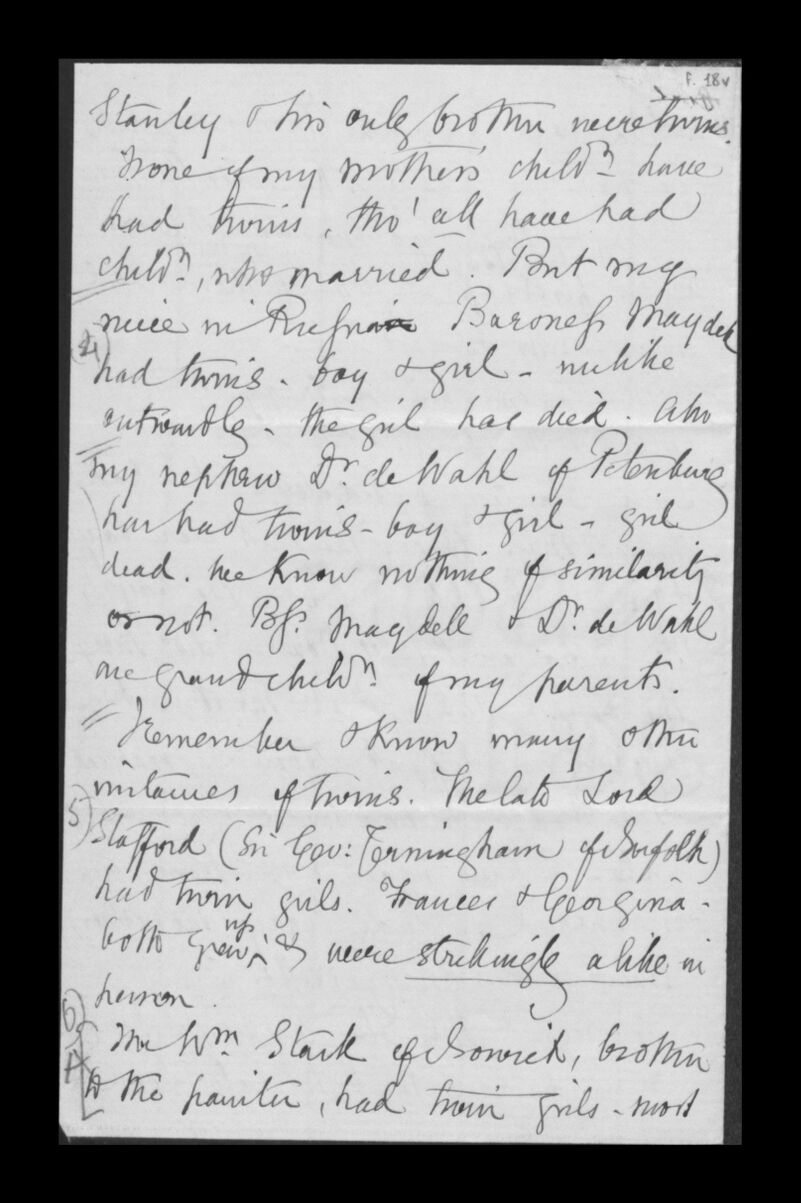 F. 18v
Stanley & his only brother were twins.
None of my mother's child.n have
had twins, tho' all have had
child.n, who married. But my
(4)
niece in Russia Baroness Maydell
had twins - boy & girl - unlike
outwardly - the girl has died. Also
my nephew Dr. de Wahl of Petersburg
has had twins - boy & girl - girl
dead. We know nothing of similarity
or not. Bss. Maydell & Dr. de Wahl
are grandchild.n of my parents.
I remember & know many other
instances of twins. The late Lord
5)
Stafford (Sir Geo: Jerningham of Norfolk)
had twin girls. Frances & Georgina -
both grew up, & were strikingly alike in
person.
6)
Mr Wm. Stark of Norwich, brother
to the painter, had twin girls - most